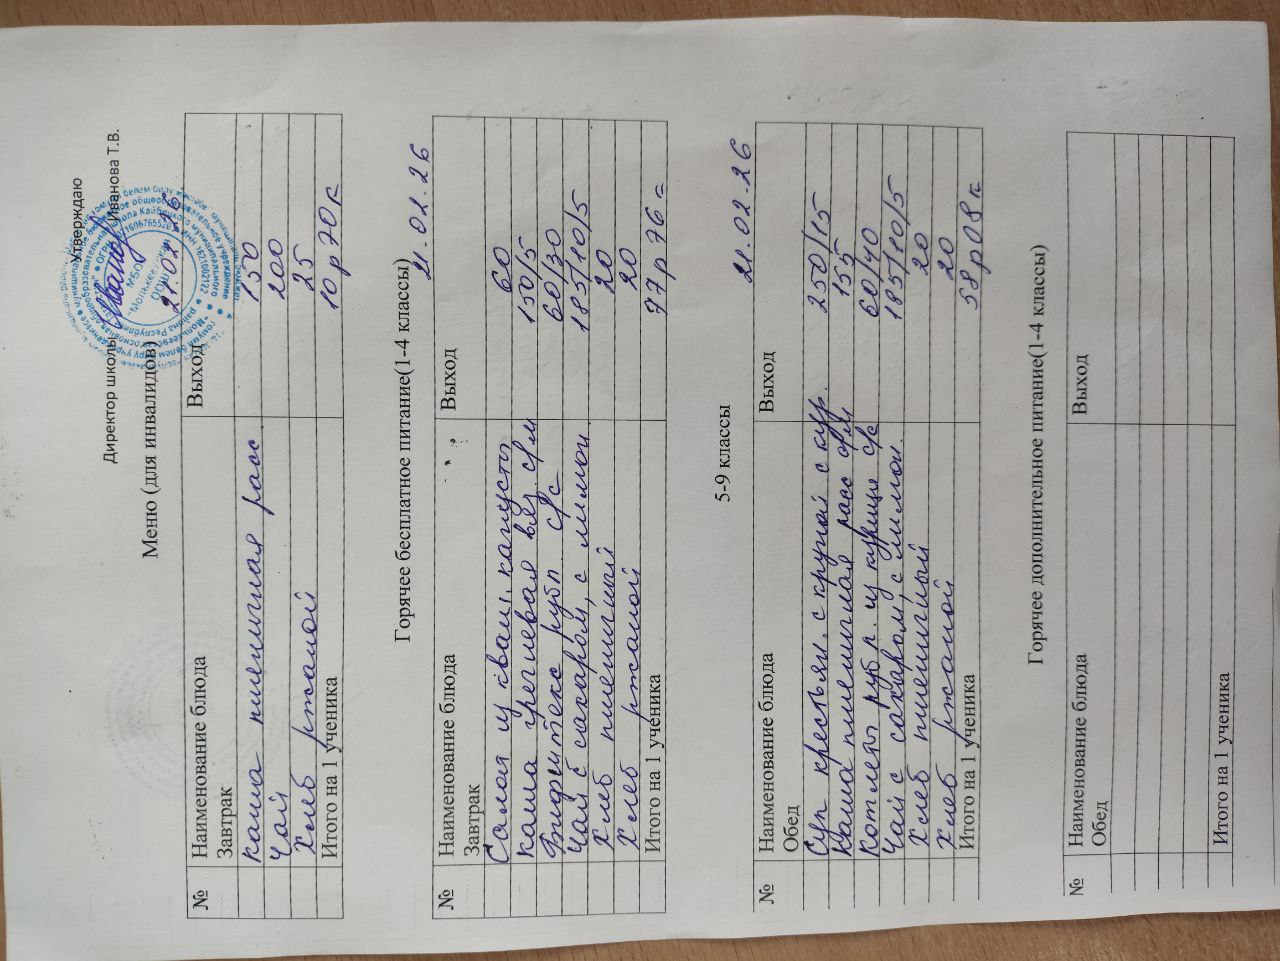 Утверждаю
Директор школы: Иванова Т.В.
21.02.26
Меню (для инвалидов)
№ Наименование блюда Выход
Завтрак
каша пшеничная расс 150
Чай 200
Хлеб ржаной 25
Итого на 1 ученика 10р 70к
Горячее бесплатное питание(1-4 классы)
21.02.26
№ Наименование блюда Выход
Завтрак
Салат из кваш. капусты 60
каша гречневая вяз с/м 150/5
Бифштекс рубл с/с 60/30
Чай с сахаром, с лимон 185/10/5
Хлеб пшеничный 20
Хлеб ржаной 20
Итого на 1 ученика 77р 76=
5-9 классы
21.02.26
№ Наименование блюда Выход
Обед
Суп крестьян. с крупой с кур. 250/15
Каша пшеничная расс с/м 155
Котлеты рубл. из курицы с/с 60/40
Чай с сахаром, с лимон. 185/10/5
Хлеб пшеничный 20
Хлеб ржаной 20
Итого на 1 ученика 58р 08к
Горячее дополнительное питание(1-4 классы)
№ Наименование блюда Выход
Обед
Итого на 1 ученика